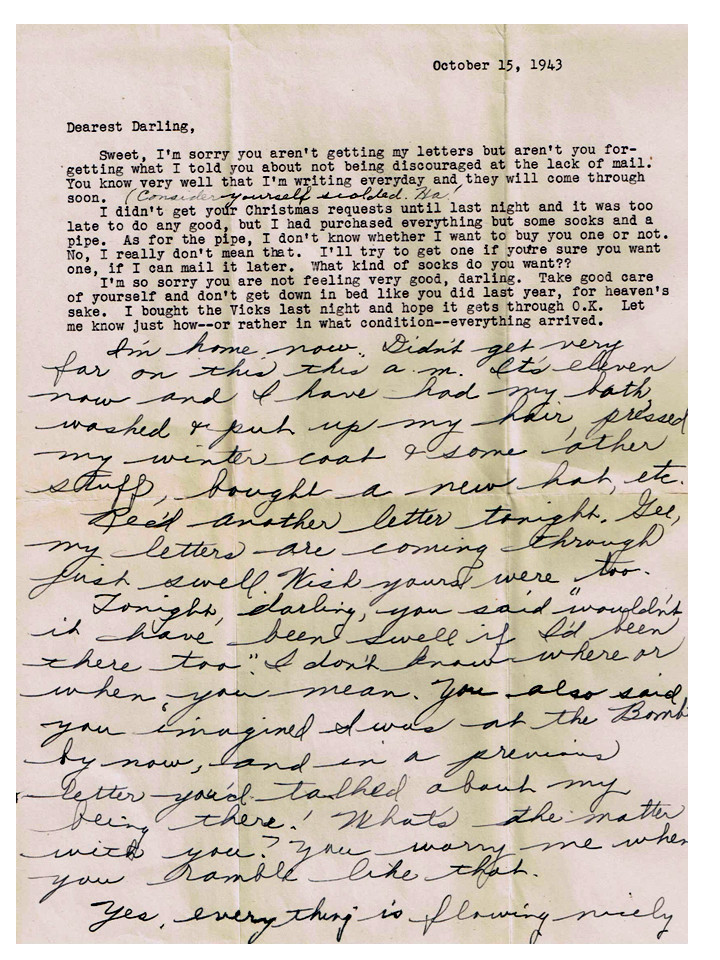 October 15, 1943
Dearest Darling,
Sweet, I'm sorry you aren't getting my letters but aren't you for-
getting what I told you about not being discouraged at the lack of mail.
You know very well that I'm writing everyday and they will come through
soon. (Consider yourself scolded. Ha!
I didn't get your Christmas requests until last night and it was too
late to do any good, but I had purchased everything but some socks and a
pipe. As for the pipe, I don't know whether I want to buy you one or not.
No, I really don't mean that. I'll try to get one if you're sure you want
one, if I can mail it later. What kind of socks do you want??
I'm so sorry you are not feeling very good, darling. Take good care
of yourself and don't get down in bed like you did last year, for heaven's
sake. I bought the Vicks last night and hope it gets through O.K. Let
me know just how--or rather in what condition--everything arrived.
I'm home now. Didn't get very
far on this this a.m. It's eleven
now and I have had my bath,
washed & put up my hair, pressed
my winter coat & some other
stuff, bought a new hat, etc.
Rec'd another letter tonight. Gee,
my letters are coming through
just swell. Wish yours were too.
Tonight, darling, you said "wouldn't
it have been swell if I'd been
there too". I don't know where or
when you mean. You also said,
you imagined I was at the Bomb
by now, and in a previous
letter you'd talked about my
being there! What's the matter
with you? You worry me when
you ramble like that.
Yes, everything is flowing nicely